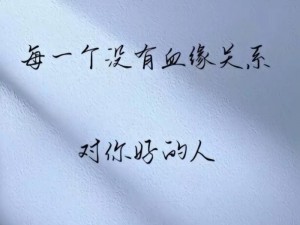 每一个没有血缘关系
对你好的人